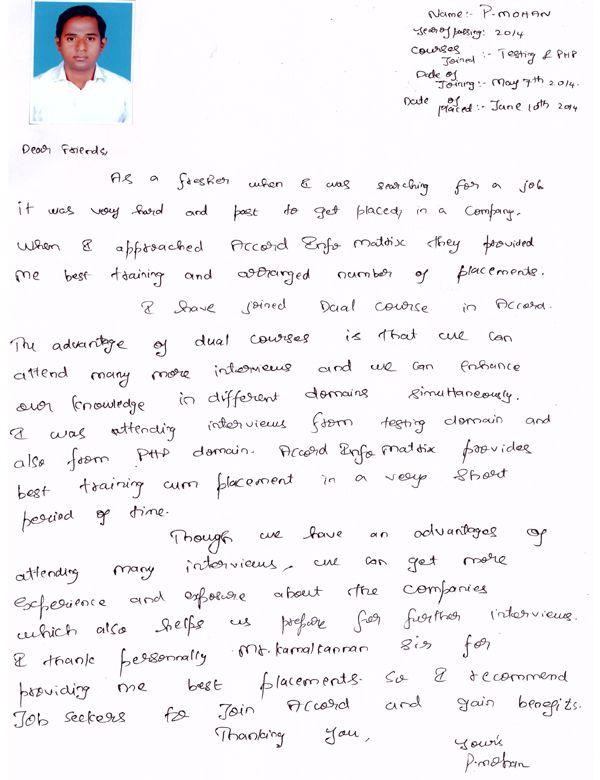 Name:- P.MOHAN
Year of passing: 2014
Courses
Joined :- Testing & PHP
Date of
Joining:- May 7th 2014.
Date of
placed:- June 10th 2014
Dear Friends,
As a fresher when I was searching for a job
it was very hard and past to get placed, in a Company.
When I approached Accord Info Matrix they provided
me best training and arranged number of placements.
I have joined Dual Course in Accord.
The advantage of dual courses is that we can
attend many more interviews and we can enhance
our knowledge in different domains simultaneously.
I was attending interviews from testing domain and
also from PHP domain. Accord Info Matrix provides
best training cum placement in a very short
period of time.
Though we have an advantages of
attending many interviews, we can get more
experience and exposure about the companies
which also helps us prepare for further interviews.
I thank personnally Mr. Kamal kannan Sir for
providing me best placements. So I recommend
Job seekers to Join Accord and gain benefits.
Thanking You,
Your's
P.mohan